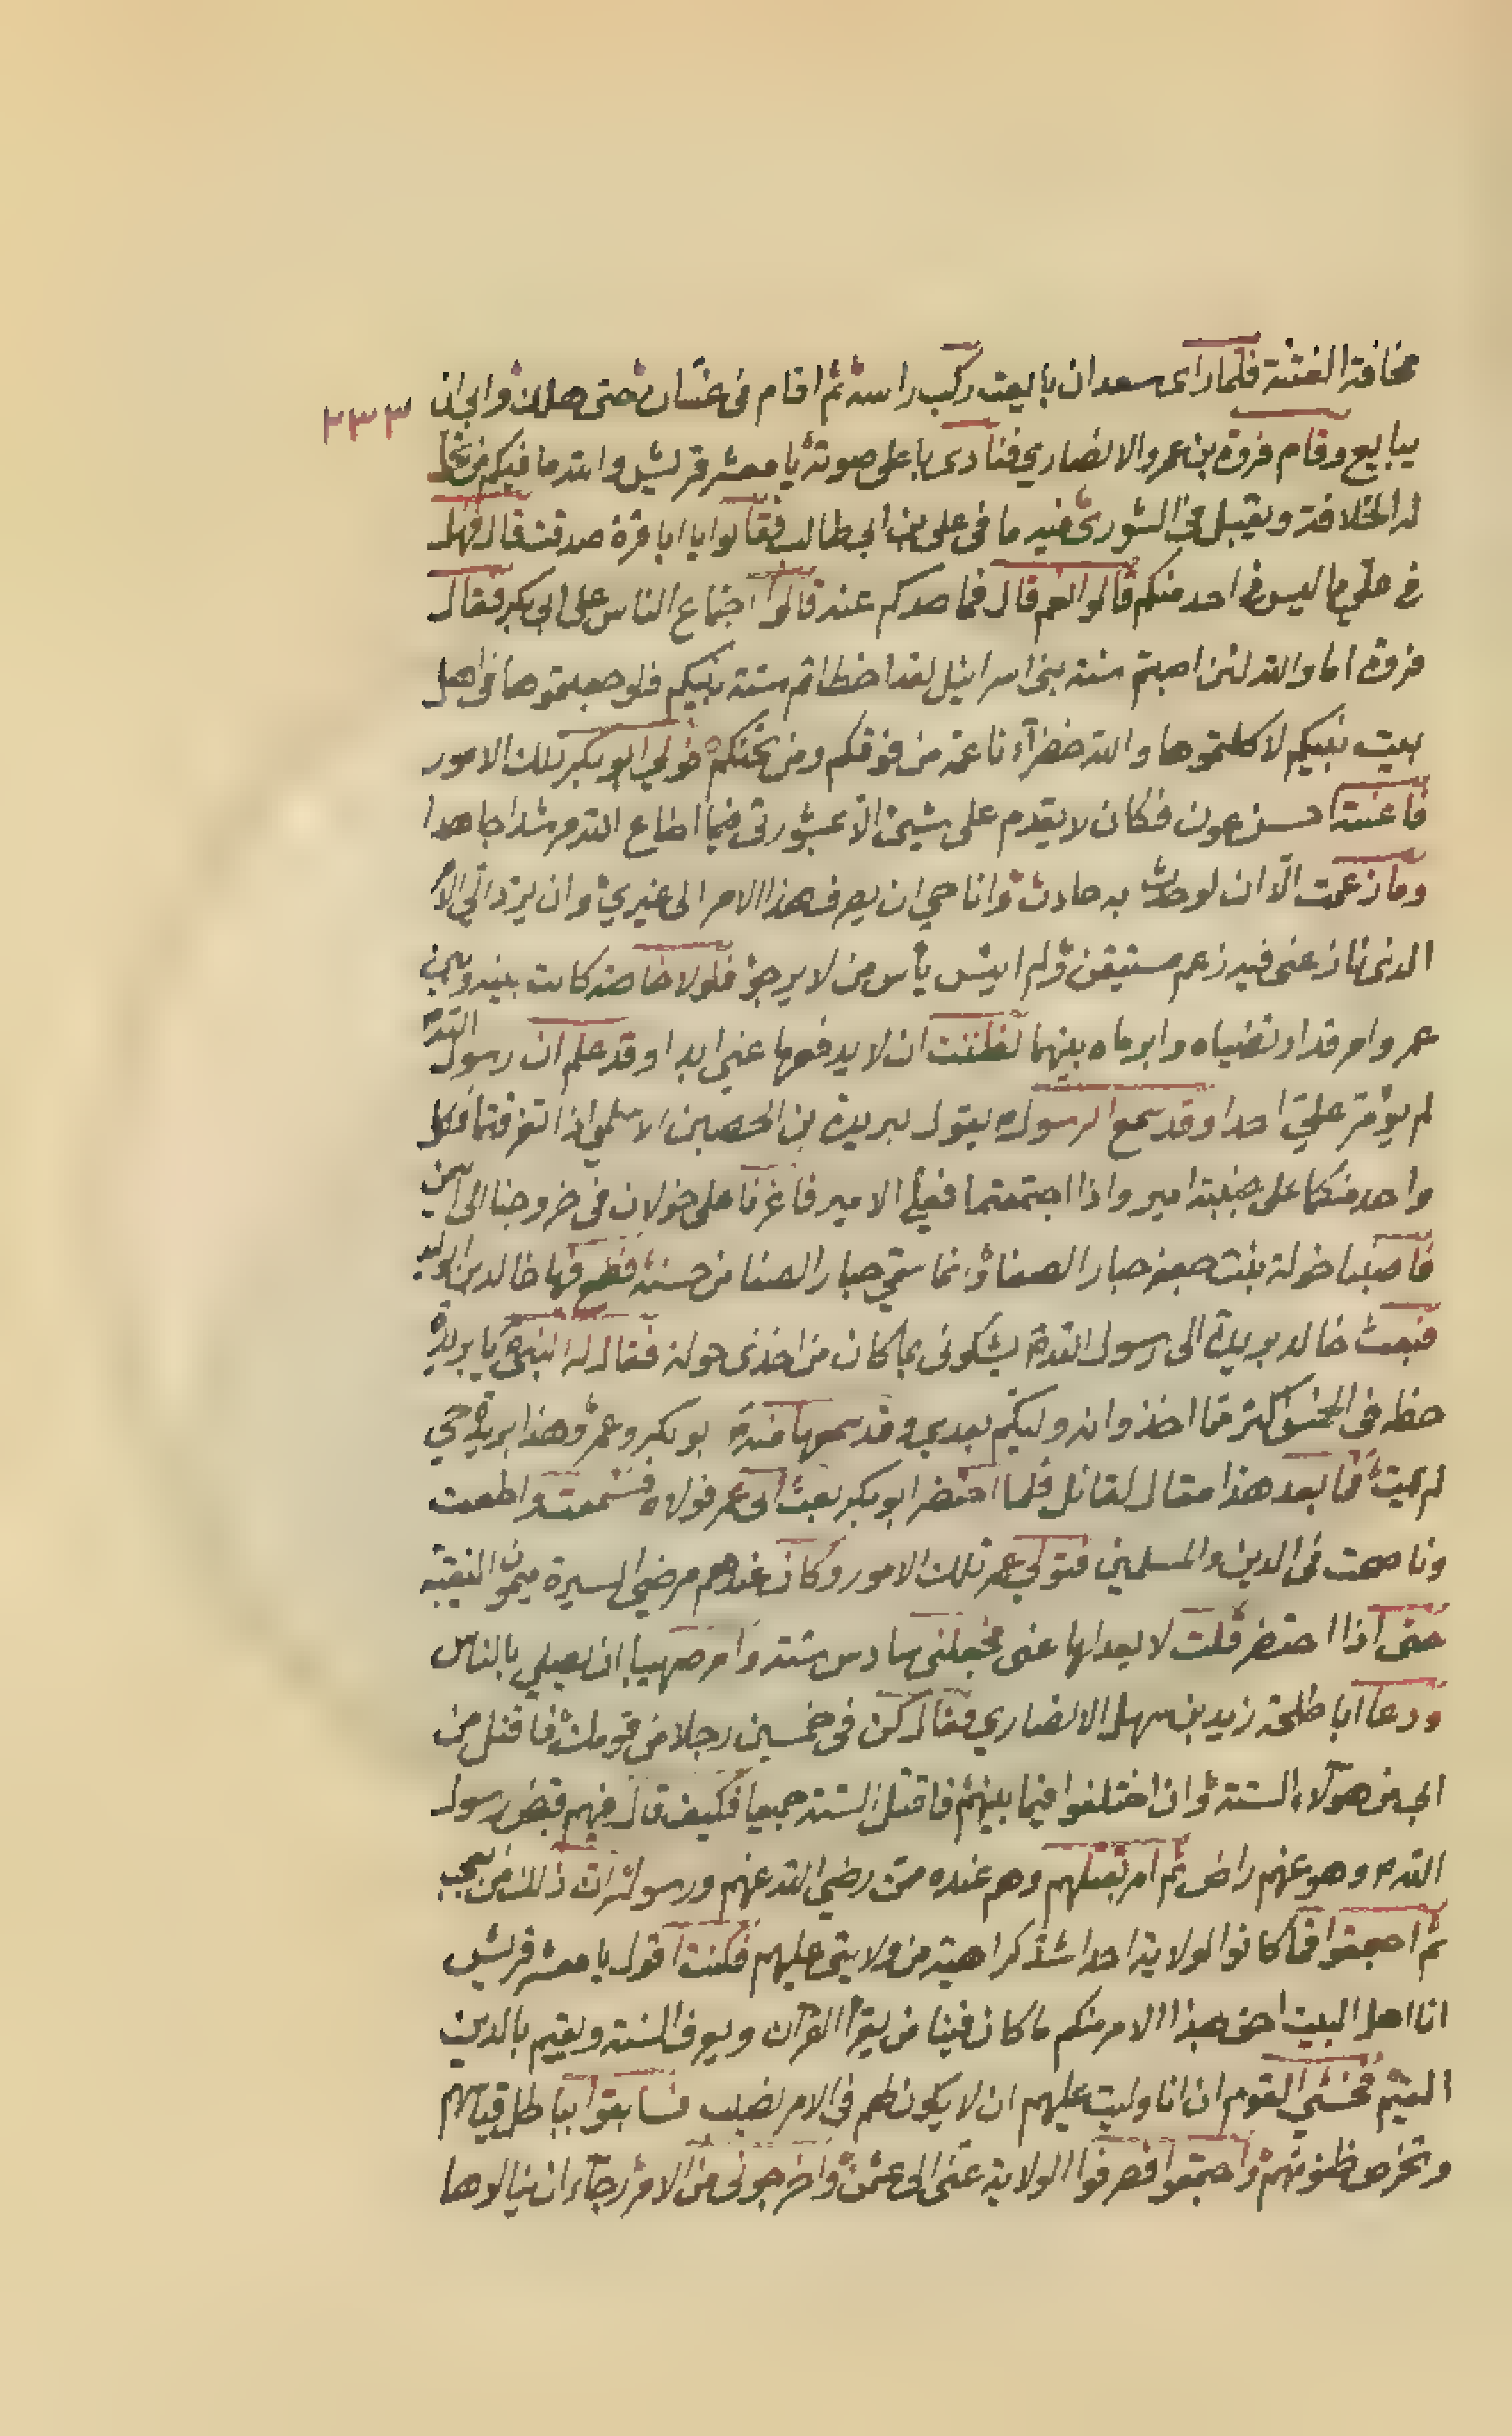 مخافة الفتنة فلما رای سعد ان بايعت ركب راسه ثم اقام فی غسان حتی هلك وابی ان
۲۳۳
يبايع وقام فروة بن عمرو الانصاري فنادی باعلی صوته يا معشر قريش والله ما فيكم من تحل
له الخلافة ويقبل فی الشوری فيه ما فی علی بن ابی طالب فقالوا يا ابا فروة صدقت قال فهل
فی علي ما ليس فی احد منكم قالوا نعم قال فما صدكم عنه قالوا اجتماع الناس علی ابی بكر فقال
فروة اما والله لئن اصبتم سنة بنی اسرائيل لقد اخطاتم سنة نبيكم فلو جعلتموها فی اهل
بيت نبيكم لاكلتموها والله خضرآء ناعمة من فوقكم ومن تحتكم فولي ابو بكر تلك الامور
فاعنته احسن عون فكان لا يقدم علی شیئ الا بمشورتی فيما اطاع الله مرشدا جاهدا
وما زعمت الّا ان لو حدث به حادث وانا حي ان يصرف هذا الامر الی غيري وان يرد الي الامر
الذی نازعنی فيه زعم مستيقن ولم ايئس يأس من لا يرجو فلولا خاصة كانت بينه وبين
عمر وامر قد ارتضياه وابرماه بينهما لظننت ان لا يدفعها عني ابدا وقد علم ان رسول الله
لم يؤمر علي احدا وقد سمع الرسول يقول لبريدة بن الحصين الاسلمي اذا تفرقتما فكل
واحد منكما علی جنبته امير واذا اجتمعتما فعلي الامير فاغرنا علی خولان فی خروجنا الی اليمن
فاصبنا خولة بنت جعفر جبار الصفا وانما سمّي جبار الصفا من حسنه فطمع فيها خالد بن الوليد
فبعث خالد بريدة الی رسول الله يشكونی بما كان من اخذی خولة فقال له النبی يا بريدة
حظه فی الخمس اكثر مما اخذ وانه وليكم بعدي وقد سمعها منه ابو بكر وعمر وهذا بريدة حي
لم يمت فما بعد هذا مقال لقائل فلما احتضر ابو بكر بعث الی عمر فولاه فسمعت واطعت
وناصحت فی الدين والمسلمين فتولي عمر تلك الامور وكان عندهم مرضي السيرة ميمون النقيبة
حتی اذا احتضر قلت لا يعدلها عنی فجعلنی سادس ستة وامر صهيبا ان يصلي بالناس
ودعا ابا طلحة زيد بن سهل الانصاري فقال كن فی خمسين رجلا من قومك فاقتل من
ابی من هؤلآء الستة وان اختلفوا فيما بينهم فاقتل الستة جميعا فكيف قال فيهم قبض رسول
الله وهو عنهم راض ثم امر بقتلهم وهم عنده ممن رضي الله عنهم ورسوله ان ذلك من عجب
ثم اجمعوا فما كانوا لولاية احد اشد كراهية من ولايتی عليهم فكنت اقول يا معشر قريش
انا اهل البيت احق بهذا الامر منكم ما كان فينا من يقرا القرآن ويعرف السنة ويقيم بالدين
القيّم فخشي القوم ان انا وليت عليهم ان لا يكون لهم فی الامر نصيب فسابقوا بباطل قيآلهم
وتخرص ظنونهم واجمعوا فصرفوا الولاية عنی الی عثمن واخرجونی من الامر رجآء ان ينالوها